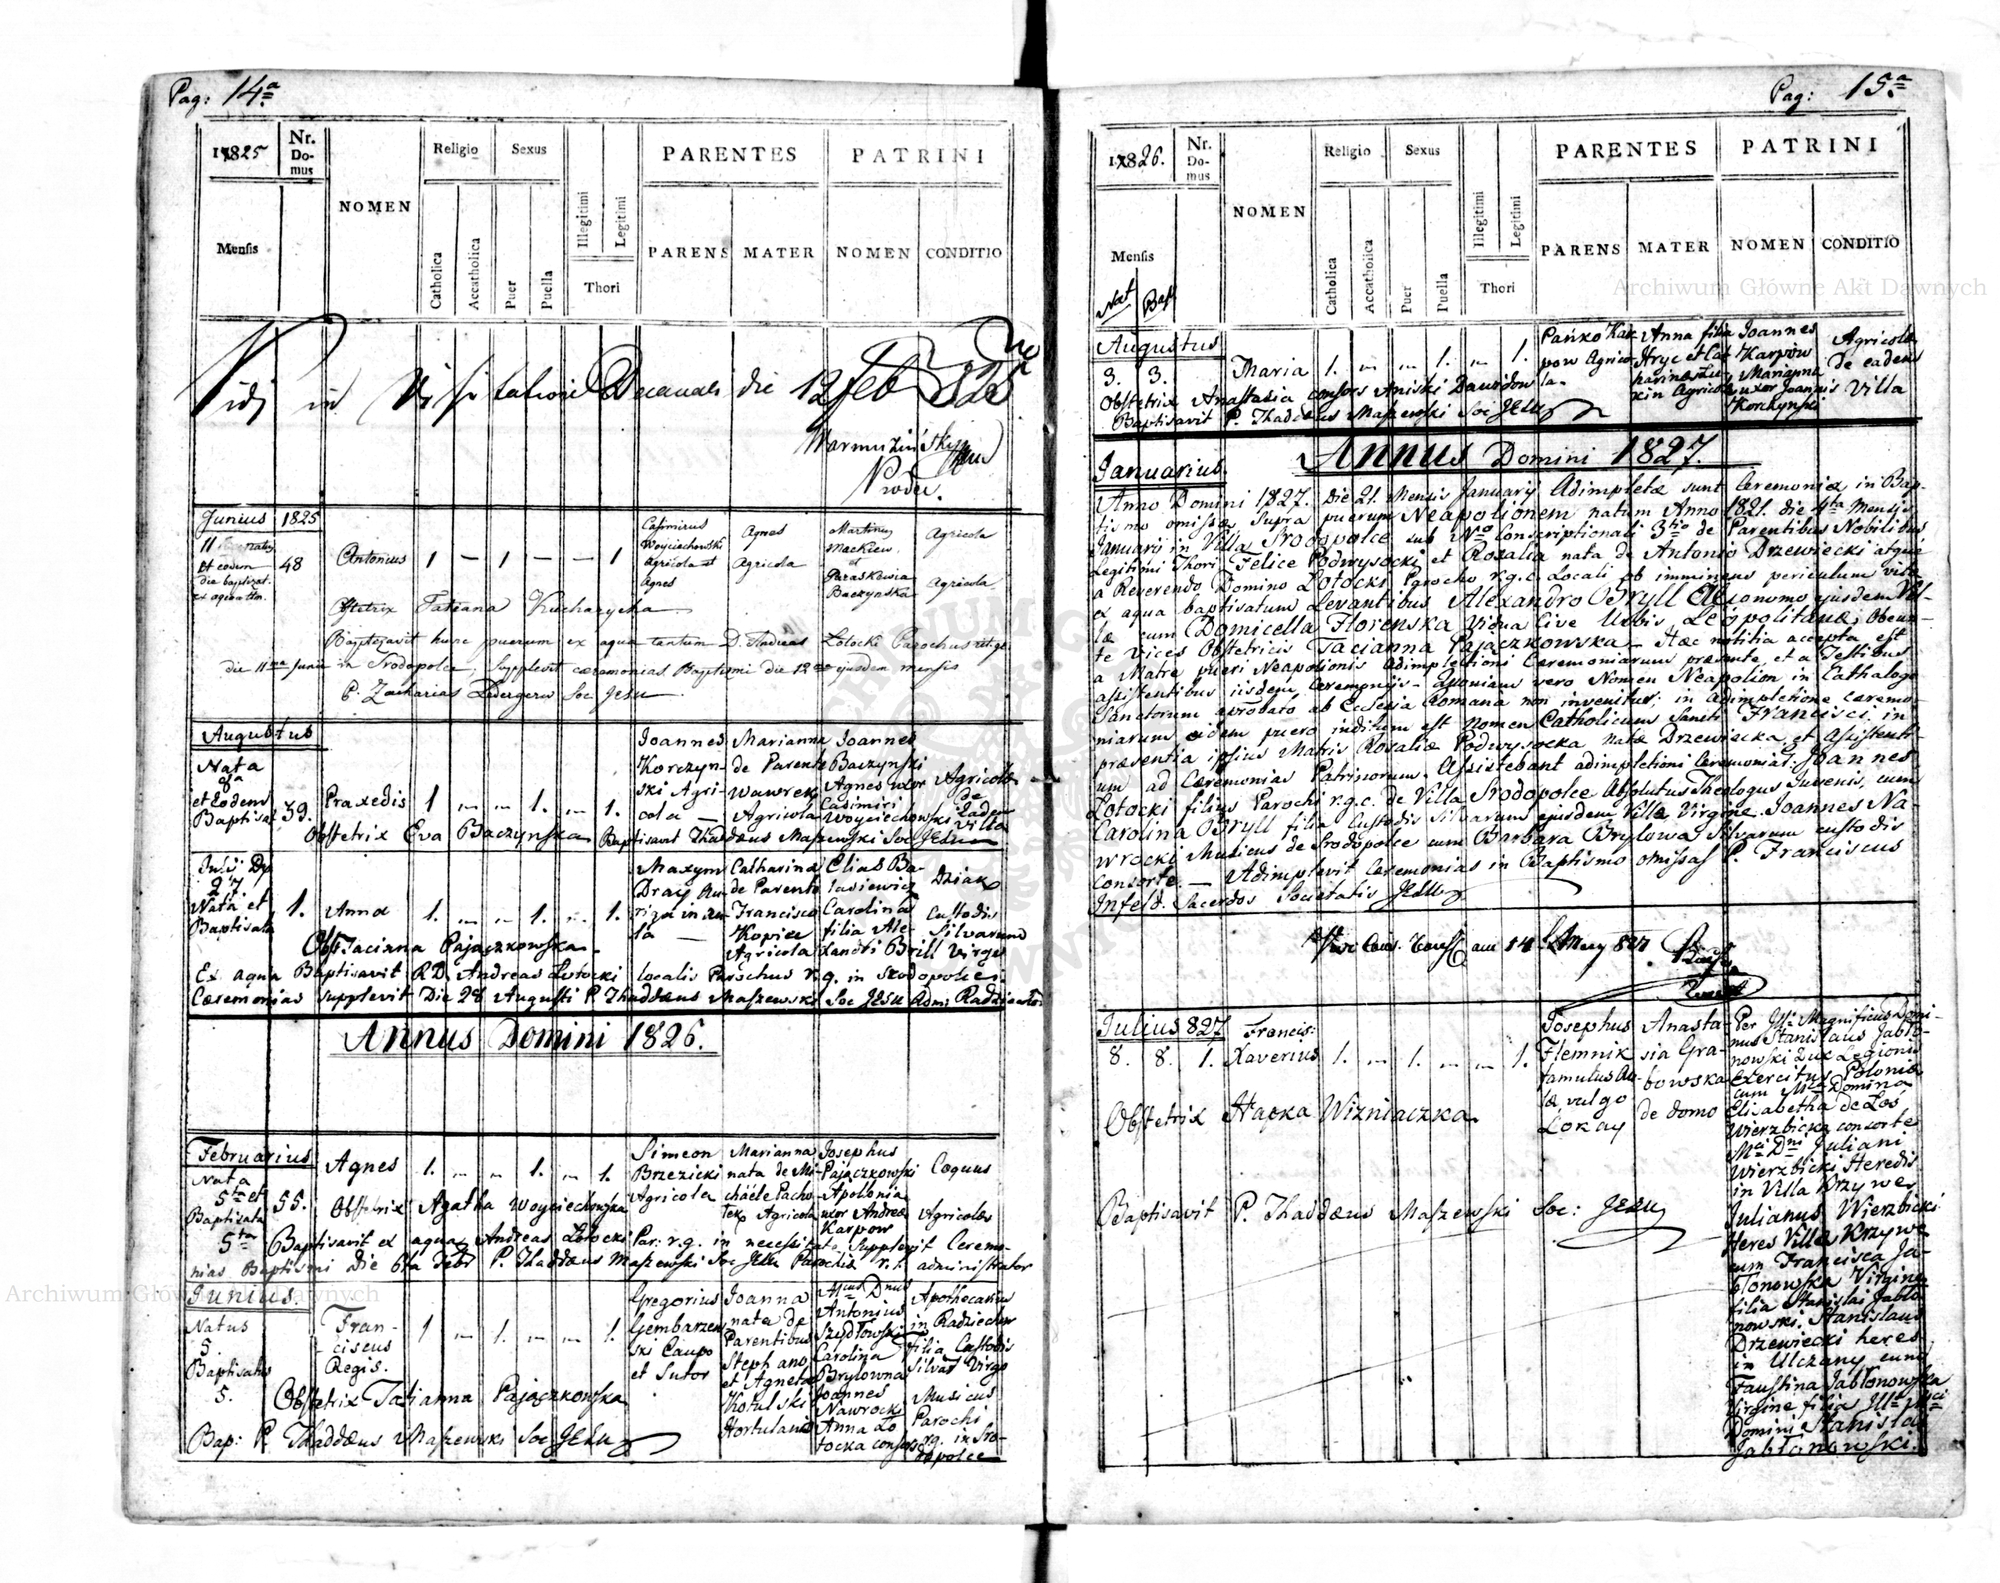 Pag: 14ª
1825
Nr. Domus
NOMEN
Religio
Sexus
PARENTES
PATRINI
Mensis
Catholica
Accatholica
Puer
Puella
Illegitimi
Legitimi
Thori
PARENS
MATER
NOMEN
CONDITIO
Vidi in Visitatione Decanali die 12 Feb 825
Junius 1825
11
et eodem
die baptizat.
48
Antonius 1 — 1 — — 1
Casimirus
Woyciechowski
agricola et
Agnes
Agnes
Agricola
Martinus
Mackiew.
et
Paraskewia
Baczynska
Agricola
Agricola
Obstetrix Tatiana Kucharycha
Baptizavit hunc puerum ex aqua tantum D. Andreas Łotocki Parochus rit. gr.
die 11ma Junii in Srodopolce, supplevit cæremonias Baptismi die 12 ejusdem mensis
P. Zacharias Ledergerw Soc JESU
Augustus
Nata
et Eodem
Baptisat
39.
Praxedis 1 — — 1. — 1.
Joannes
Korczyn-
ski Agri-
cola —
Marianna
de Parente
Wawrek
Agricola
Joannes
Baczynski
Agnes uxor
Casimiri
Woyciechowski
Agricolæ
de
Eadem
Villa
Obstetrix Eva Baczynska Baptisavit Thaddæus Maszewski Soc JESU
27
Nata et
Baptisata
1.
Anna 1. — — 1. — 1.
Maxym
Dray Au-
riga in au-
la —
Catharina
de Parente
Francisco
Kopiec
Agricola
Elias Ba-
lasiewicz
Carolina
filia Ale-
xandri Brill
Dziak
Custodis
Silvarum
Virgo
Obst. Taciana Pajączkowska
Ex aqua Baptisavit RD. Andreas Łotocki localis Parochus r.g. in Srodopolce.
Cæremonias supplevit Die 28 Augusti P. Thaddæus Maszewski Soc JESU Adm:
Annus Domini 1826.
Februarius
Nata
5ta et
Baptisata
5ta
55.
Agnes 1. — — 1. — 1.
Simeon
Brzezicki
Agricola
Marianna
nata de Mi-
chäele Pacho-
lek Agricola
Josephus
Pajączkowski
Apollonia
uxor Andreæ
Karpow
Coquus
Agricolæ
Obstetrix Agatha Woyciechowska
Baptisavit ex aqua Andreas Łotocki Par: r.g. in necessitate. Supplevit Ceremo-
nias Baptismi Die 6ta Febr P. Thaddæus Maszewski Soc JESU Parochiæ r.l. administrator
Junius.
Natus
5
Baptisatus
5.
Fran-
ciscus
Regis.
1 — 1. — — 1.
Gregorius
Gembarzew-
ski Caupo
et Sutor
Joanna
nata de
Parentibus
Stephano
et Agneta
Kotulski
Hortulanis
Antonius
Szydłowski
Carolina
Brylowna
Joannes
Nawrocki
Anna Ło-
tocka consors
Apothecarius
in Radziechow
filia Custodis
Silvar Virgo
Musicus
Parochi
r.g. in Sro-
dopolce
Obstetrix Tatianna Pajączkowska
Bap: P. Thaddæus Maszewski Soc JESU
Pag: 15ª
1826.
Nr. Domus
NOMEN
Religio
Sexus
PARENTES
PATRINI
Mensis
Nat Bap
Catholica
Accatholica
Puer
Puella
Illegitimi
Legitimi
Thori
PARENS
MATER
NOMEN
CONDITIO
Augustus
3. 3.
Maria 1. — — 1. — 1.
Pańko Kar-
pow Agrico-
la.
Anna filia
Hryc et Cat-
harinæ
Joannes
Karpow
Marianna
uxor Joannis
Korczynski
Agricolæ
De eadem
Villa
Obstetrix Anastasia consors Aniski Dawidow
Baptisavit P. Thaddæus Maszewski Soc JESU
Annus Domini 1827.
Januarius.
Anno Domini 1827. Die 21. Mensis Januarij Adimpletæ sunt Ceremoniæ in Bap-
tismo omissæ supra puerum Neapolionem natum Anno 1821. die 4ta Mensis
Januarii in Villa Srodopolce sub Nro Conscriptionali 3tio de Parentibus Nobilibus
Legitimi Thori Felice Podwysocki et Rosalia nata de Antonio Drzewiecki atque
a Reverendo Domino Łotocki Parocho r.g.c. Locali ob imminens periculum vitæ
ex aqua baptisatum Levantibus Alexandro Bryll Æconomo ejusdem Vil-
læ cum Domicella Florenska Vidua Cive Urbis Leopolitanæ, Obeun-
te vices Obstetricis Tacianna Pajączkowska — Hæc notitia accepta est
a Matre pueri Neapolionis adimpletioni Cæremoniarum præsente, et a Testibus
assistentibus iisdem Cæremoniis — Quoniam vero Nomen Neapolion in Cathalogo
Sanctorum aprobato ab Ecclesia Romana non invenitur; in adimpletione cæremo-
niarum eidem puero inditum est Nomen Catholicum Sancti Francisci in
præsentia ipsius Matris Rosaliæ Podwysocka natæ Drzewiecka et Assistenti-
um ad Cæremonias Patrinorum. Assistebant adimpletioni Cæremonias: Joannes
Łotocki filius Parochi r.g.c. de Villa Srodopolce Absolutus Theologus Juvenis, cum
Carolina Bryll filia Custodis Silvarum ejusdem Villæ Virgine. Joannes Na-
wrocki Musicus de Srodopolce cum Barbara Brylowa Silvarum custodis
Consorte. — Adimplevit Ceremonias in Baptismo omissas P. Franciscus
Infeld. Sacerdos Societatis JESU
am 14 May 827.
Julius 827
8. 8. 1.
Francis:
Xaverius 1. — 1. — — 1.
Josephus
Hlemnik
famulus Au-
læ vulgo
Lokay
Anasta-
sia Gra-
bowska
de domo
Per Illm Magnificus Domi-
nus Stanislaus Jabło-
nowski Dux Legionis
Exercitus Poloniæ
cum Mca Domina
Elisabetha de Łoś
Wierzbicka consorte
Mci Dni Juliani
Wierzbicki Heredis
in Villa Krzywe
Julianus Wierzbicki
Heres Villæ Krzywe
cum Francisca Ja-
błonowska Virgine
filia Stanislai Jabło-
nowski. Stanislaus
Drzewiecki heres
in Ulczany cum
Faustina Jabłonowska
Virgine filia Illmi Mci
Domini Stanislai
Jabłonowski.
Obstetrix Hapka Wizniaczka
Baptisavit P. Thaddæus Maszewski Soc: JESU
Archiwum Główne Akt Dawnych
Archiwum Główne Akt Dawnych